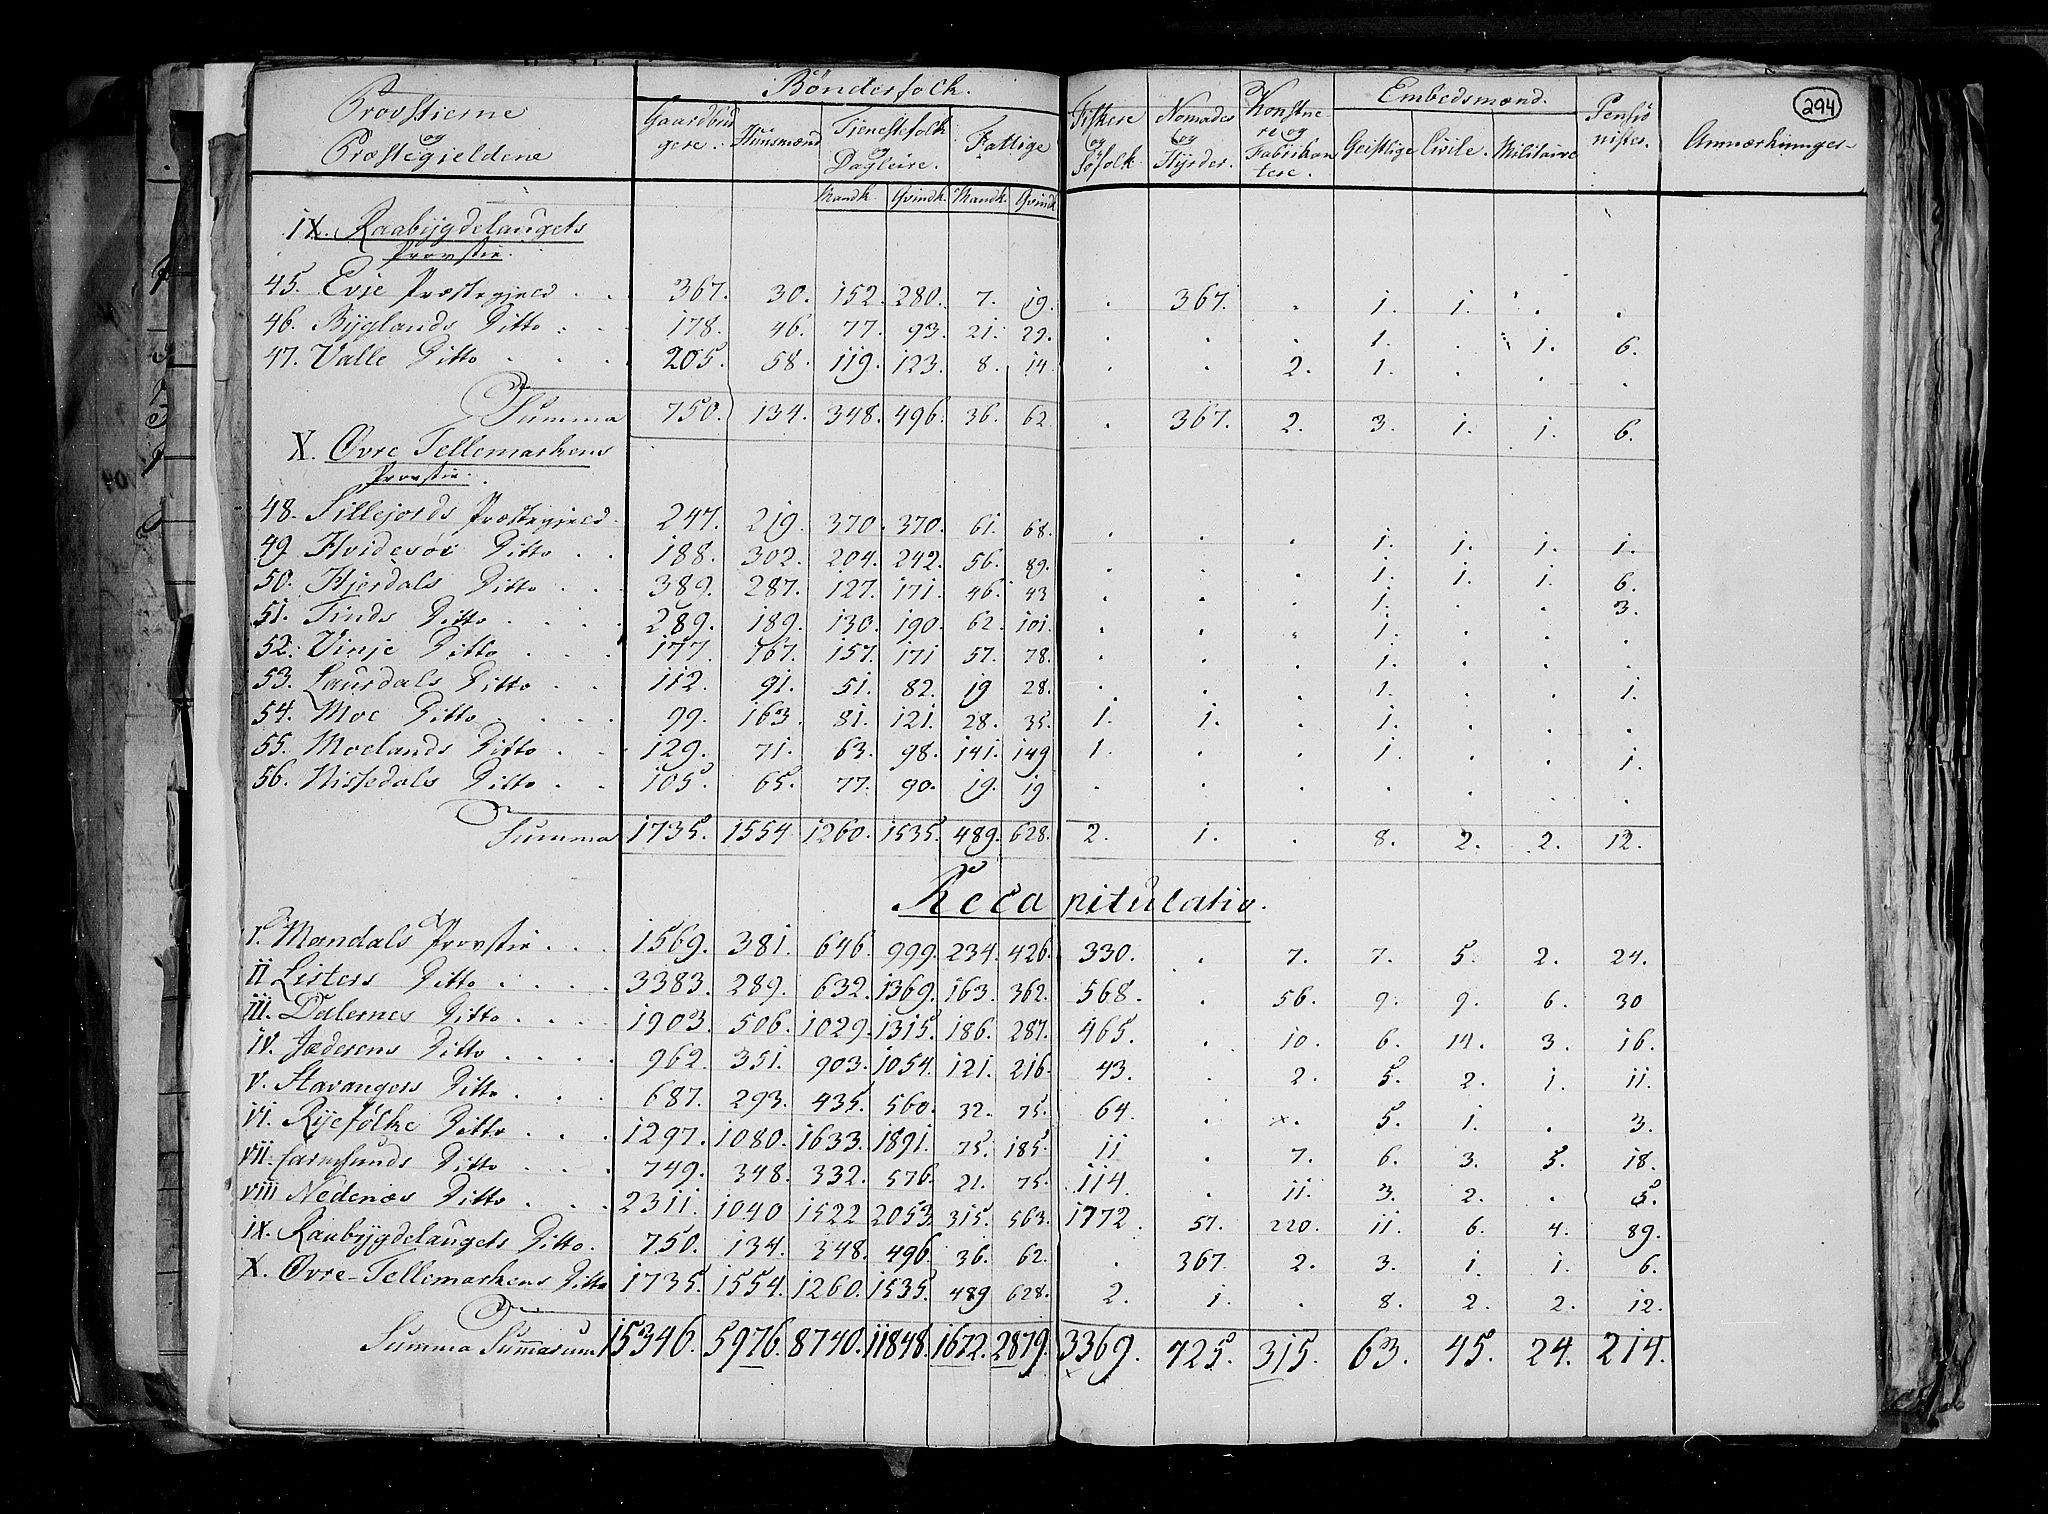 294
Provstierne og Præstegjeldene | Bønderfolk. | Fiskere og Søfolk | Nomades og Hyrder. | Konstnere og Fabrikantere. | Embedsmænd. | Pensionister. | Anmærkninger
Gaardbrugere. | Huusmænd | Tienestefolk og Dagleiere. | Fattige | Geistlige | Civile. | Militaire
Mandk. | Qvindk. | Mandk. | Qvindk
IX. Raabygdelaugets
Provstie.
45. Evje Præstegjeld . . 367. 30. 152. 280. 7. 19. . 367. . 1. 1. . .
46. Byglands Ditto . . 178. 46. 77. 93. 21. 29. . . . 1. . 1. 6.
47. Valle Ditto . . . 205. 58. 119. 123. 8. 14. . . 2. 1. . . .
Summa 750. 134. 348. 496. 36. 62. . 367. 2. 3. 1. 1. 6.
X. Øvre Tellemarkens
Provstie.
48. Sillejords Præstegjeld. 247. 219. 370. 370. 61. 68. . . . 1. 1. 1. 1.
49 Hvidesøe Ditto . . 188. 302. 204. 242. 56. 89. . . . 1. 1. 1. 6.
50. Hjerdals Ditto . . . 389. 287. 127. 171. 46. 43 . . . 1. . . 3.
51. Tinds Ditto . . . . 289. 189. 130. 190. 62. 101. . . . 1. . . .
52. Vinje Ditto . . . 177. 167. 157. 171 57. 78. . . . 1. . . .
53. Laurdals Ditto . . 112. 91. 51. 82. 19 28. . . . 1. . . 1.
54. Moe Ditto . . . . 99. 163. 81. 121. 28. 35. 1. 1. . 1. . . .
55. Moelands Ditto . . 129. 71. 63. 98. 141. 149 1. . . 1. . . 1.
56. Nissedals Ditto . . 105. 65. 77. 90. 19. 19 . . . . . . .
Summa 1735. 1554 1260. 1535. 489. 628. 2. 1. . 8. 2. 2. 12.
Recapitulatio.
I. Mandals Provstie . . . 1569. 381. 646. 999. 234. 426. 330. . 7. 7. 5. 2. 24.
II Listers Ditto . . . . 3383. 289. 632. 1369. 163. 362. 568. . 56. 9. 9. 6. 30
III. Dalernes Ditto . . . . 1903. 506. 1029. 1315. 186. 287. 465. . 10. 6. 14. 3. 16.
IV. Jæderens Ditto . . . . 962. 351. 903. 1054. 121. 216. 43. . 2. 5. 2. 1. 11.
V. Stavangers Ditto . . . 687. 293. 435. 560. 32. 75. 64. . x. 5. 1. . 3.
VI. Ryefølke Ditto . . . 1297. 1080. 1633. 1891. 75. 185. 11 . 7. 6. 3. 5. 18.
VII. Carmsunds Ditto . . . 749. 348. 332. 576. 21. 75. 114. . 11. 3. 2. . 5.
VIII Nedenæs Ditto . . . 2311. 1040 1522 2053 315. 563. 1772. 57. 220. 11. 6. 4. 89.
IX. Raabygdelaugets Ditto. 750. 134. 348. 496. 36. 62. . 367. 2. 3. 1. 1. 6.
X. Øvre-Tellemarkens Ditto 1735. 1554. 1260. 1535. 489 628. 2. 1. . 8. 2. 2. 12.
Summa Summarum 15346. 5976. 8740. 11848. 1672. 2879. 3369. 725. 315. 63. 45. 24. 214.